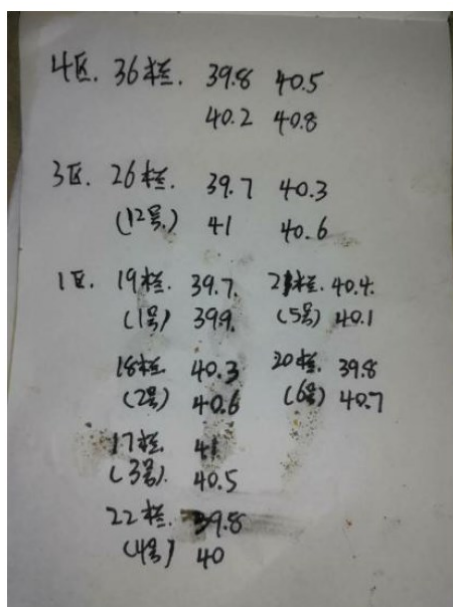 4区. 36栏. 39.8 40.5
40.2 40.8
3区. 26栏. 39.7 40.3
(12号.) 41 40.6
1区. 19栏. 39.7. 21栏. 40.4.
(1号) 399. (5号) 40.1
18栏. 40.3 20栏. 39.8
(2号) 40.6 (6号) 40.7
17栏. 41
(3号). 40.5
22栏. 39.8
(4号) 40